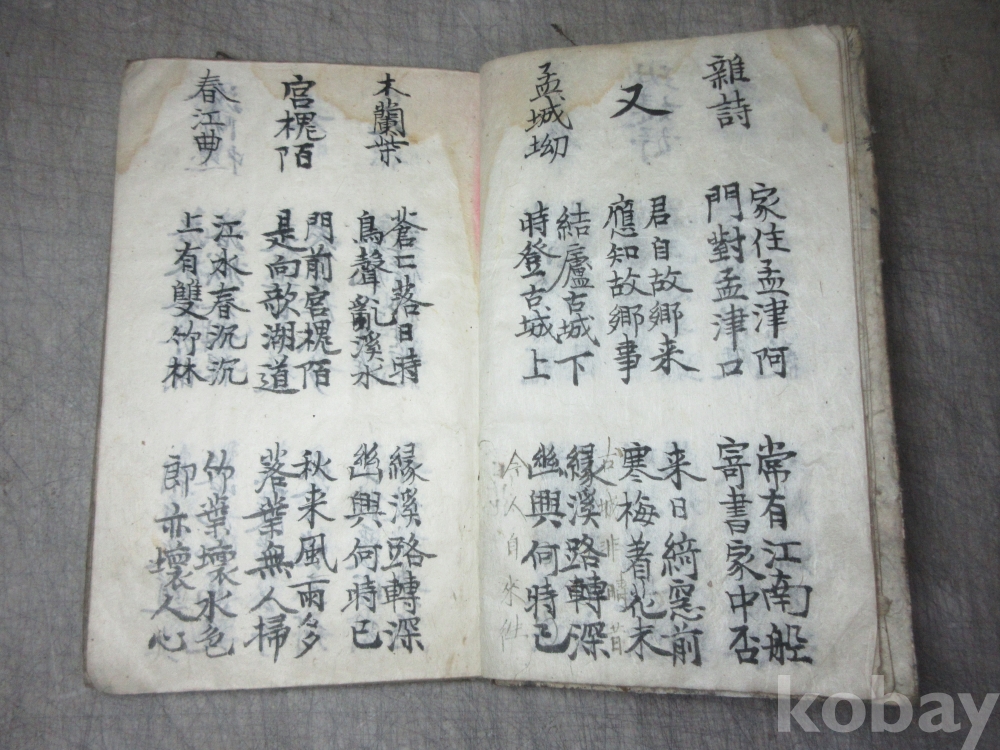 雜詩
家住孟津阿
門對孟津口
常有江南船
寄書家中否
又
君自故鄉来
應知故鄉事
来日綺窓前
寒梅着花未
孟城坳
結廬古城下
時登古城上
緣溪路轉深
幽興何時已
古城非疇昔
今人自來
木蘭柴
蒼口落日時
鳥聲亂溪水
緣溪路轉深
幽興何時已
宮槐陌
門前宮槐陌
是向欹湖道
秋来風雨多
落葉無人掃
春江曲
江水春沉沉
上有雙竹林
竹葉壞水色
郎亦壞人心
kobay